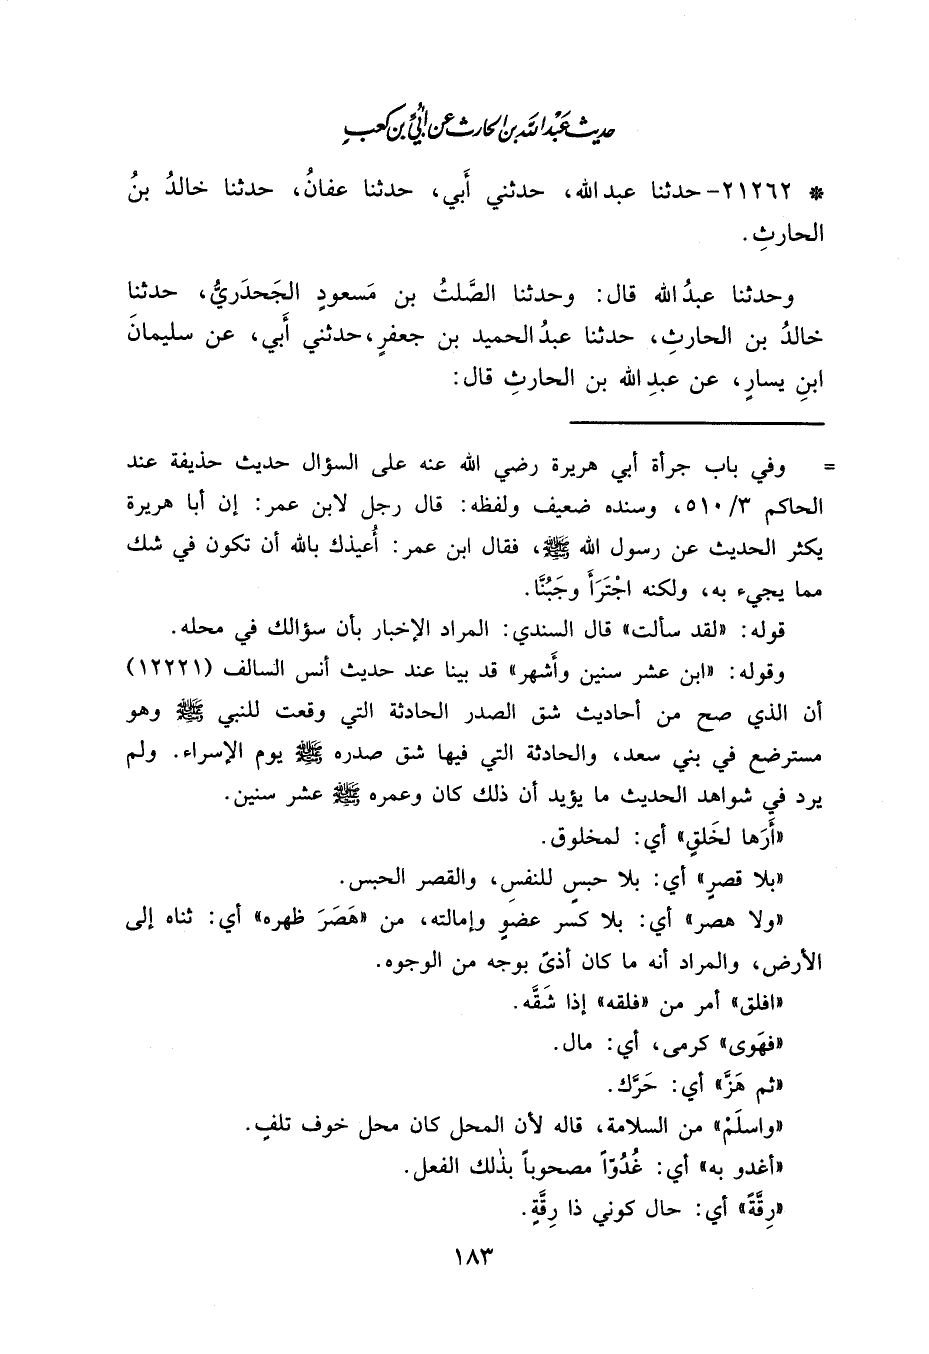 حديث عَبْد الله بن الحارث عن أُبيِّ بن كعبٍ
* ٢١٢٦٢- حدثنا عبد الله، حدثني أَبي، حدثنا عفانُ، حدثنا خالدُ بنُ
الحارثِ.
وحدثنا عبدُ الله قال: وحدثنا الصَّلتُ بن مَسعودٍ الجَحدَريُّ، حدثنا
خالدُ بن الحارثِ، حدثنا عبدُ الحميد بن جعفرٍ، حدثني أَبي، عن سليمانَ
ابنِ يسارٍ، عن عبدِ الله بن الحارثِ قال:
= وفي باب جرأة أبي هريرة رضي الله عنه على السؤال حديث حذيفة عند
الحاكم ٥١٠/٣، وسنده ضعيف ولفظه: قال رجل لابن عمر: إن أبا هريرة
يكثر الحديث عن رسول الله ﷺ، فقال ابن عمر: أُعيذك بالله أن تكون في شك
مما يجيء به، ولكنه اجْتَرَأَ وجَبُنَّا.
قوله: «لقد سألت» قال السندي: المراد الإخبار بأن سؤالك في محله.
وقوله: «ابن عشر سنين وأَشهر» قد بينا عند حديث أنس السالف (١٢٢٢١)
أن الذي صح من أحاديث شق الصدر الحادثة التي وقعت للنبي ﷺ وهو
مسترضع في بني سعد، والحادثة التي فيها شق صدره ﷺ يوم الإسراء. ولم
يرد في شواهد الحديث ما يؤيد أن ذلك كان وعمره ﷺ عشر سنين.
«أَرَها لخَلقٍ» أي: لمخلوق.
«بلا قصرٍ» أي: بلا حبسٍ للنفس، والقصر الحبس.
«ولا هصر» أي: بلا كسر عضوٍ وإمالته، من «هَصَرَ ظهره» أي: ثناه إلى
الأرض، والمراد أنه ما كان أذىً بوجه من الوجوه.
«افلق» أمر من «فلقه» إذا شَقَّه.
«فهَوى» كرمى، أي: مال.
«ثم هَزَّ» أي: حَرَّك.
«واسلَمْ» من السلامة، قاله لأن المحل كان محل خوف تلفٍ.
«أغدو به» أي: غُدُوّاً مصحوباً بذٰلك الفعل.
«رِقَّةً» أي: حال كوني ذا رِقَّةٍ.
١٨٣